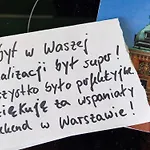 był w Waszej
alizacji był super!
szystko było profetycyjne
iękuję za wspaniały
ekend w Warszawie!